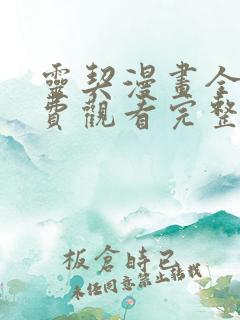 靈契漫畫全
費觀看完整
板倉時已
未經同意禁止轉載